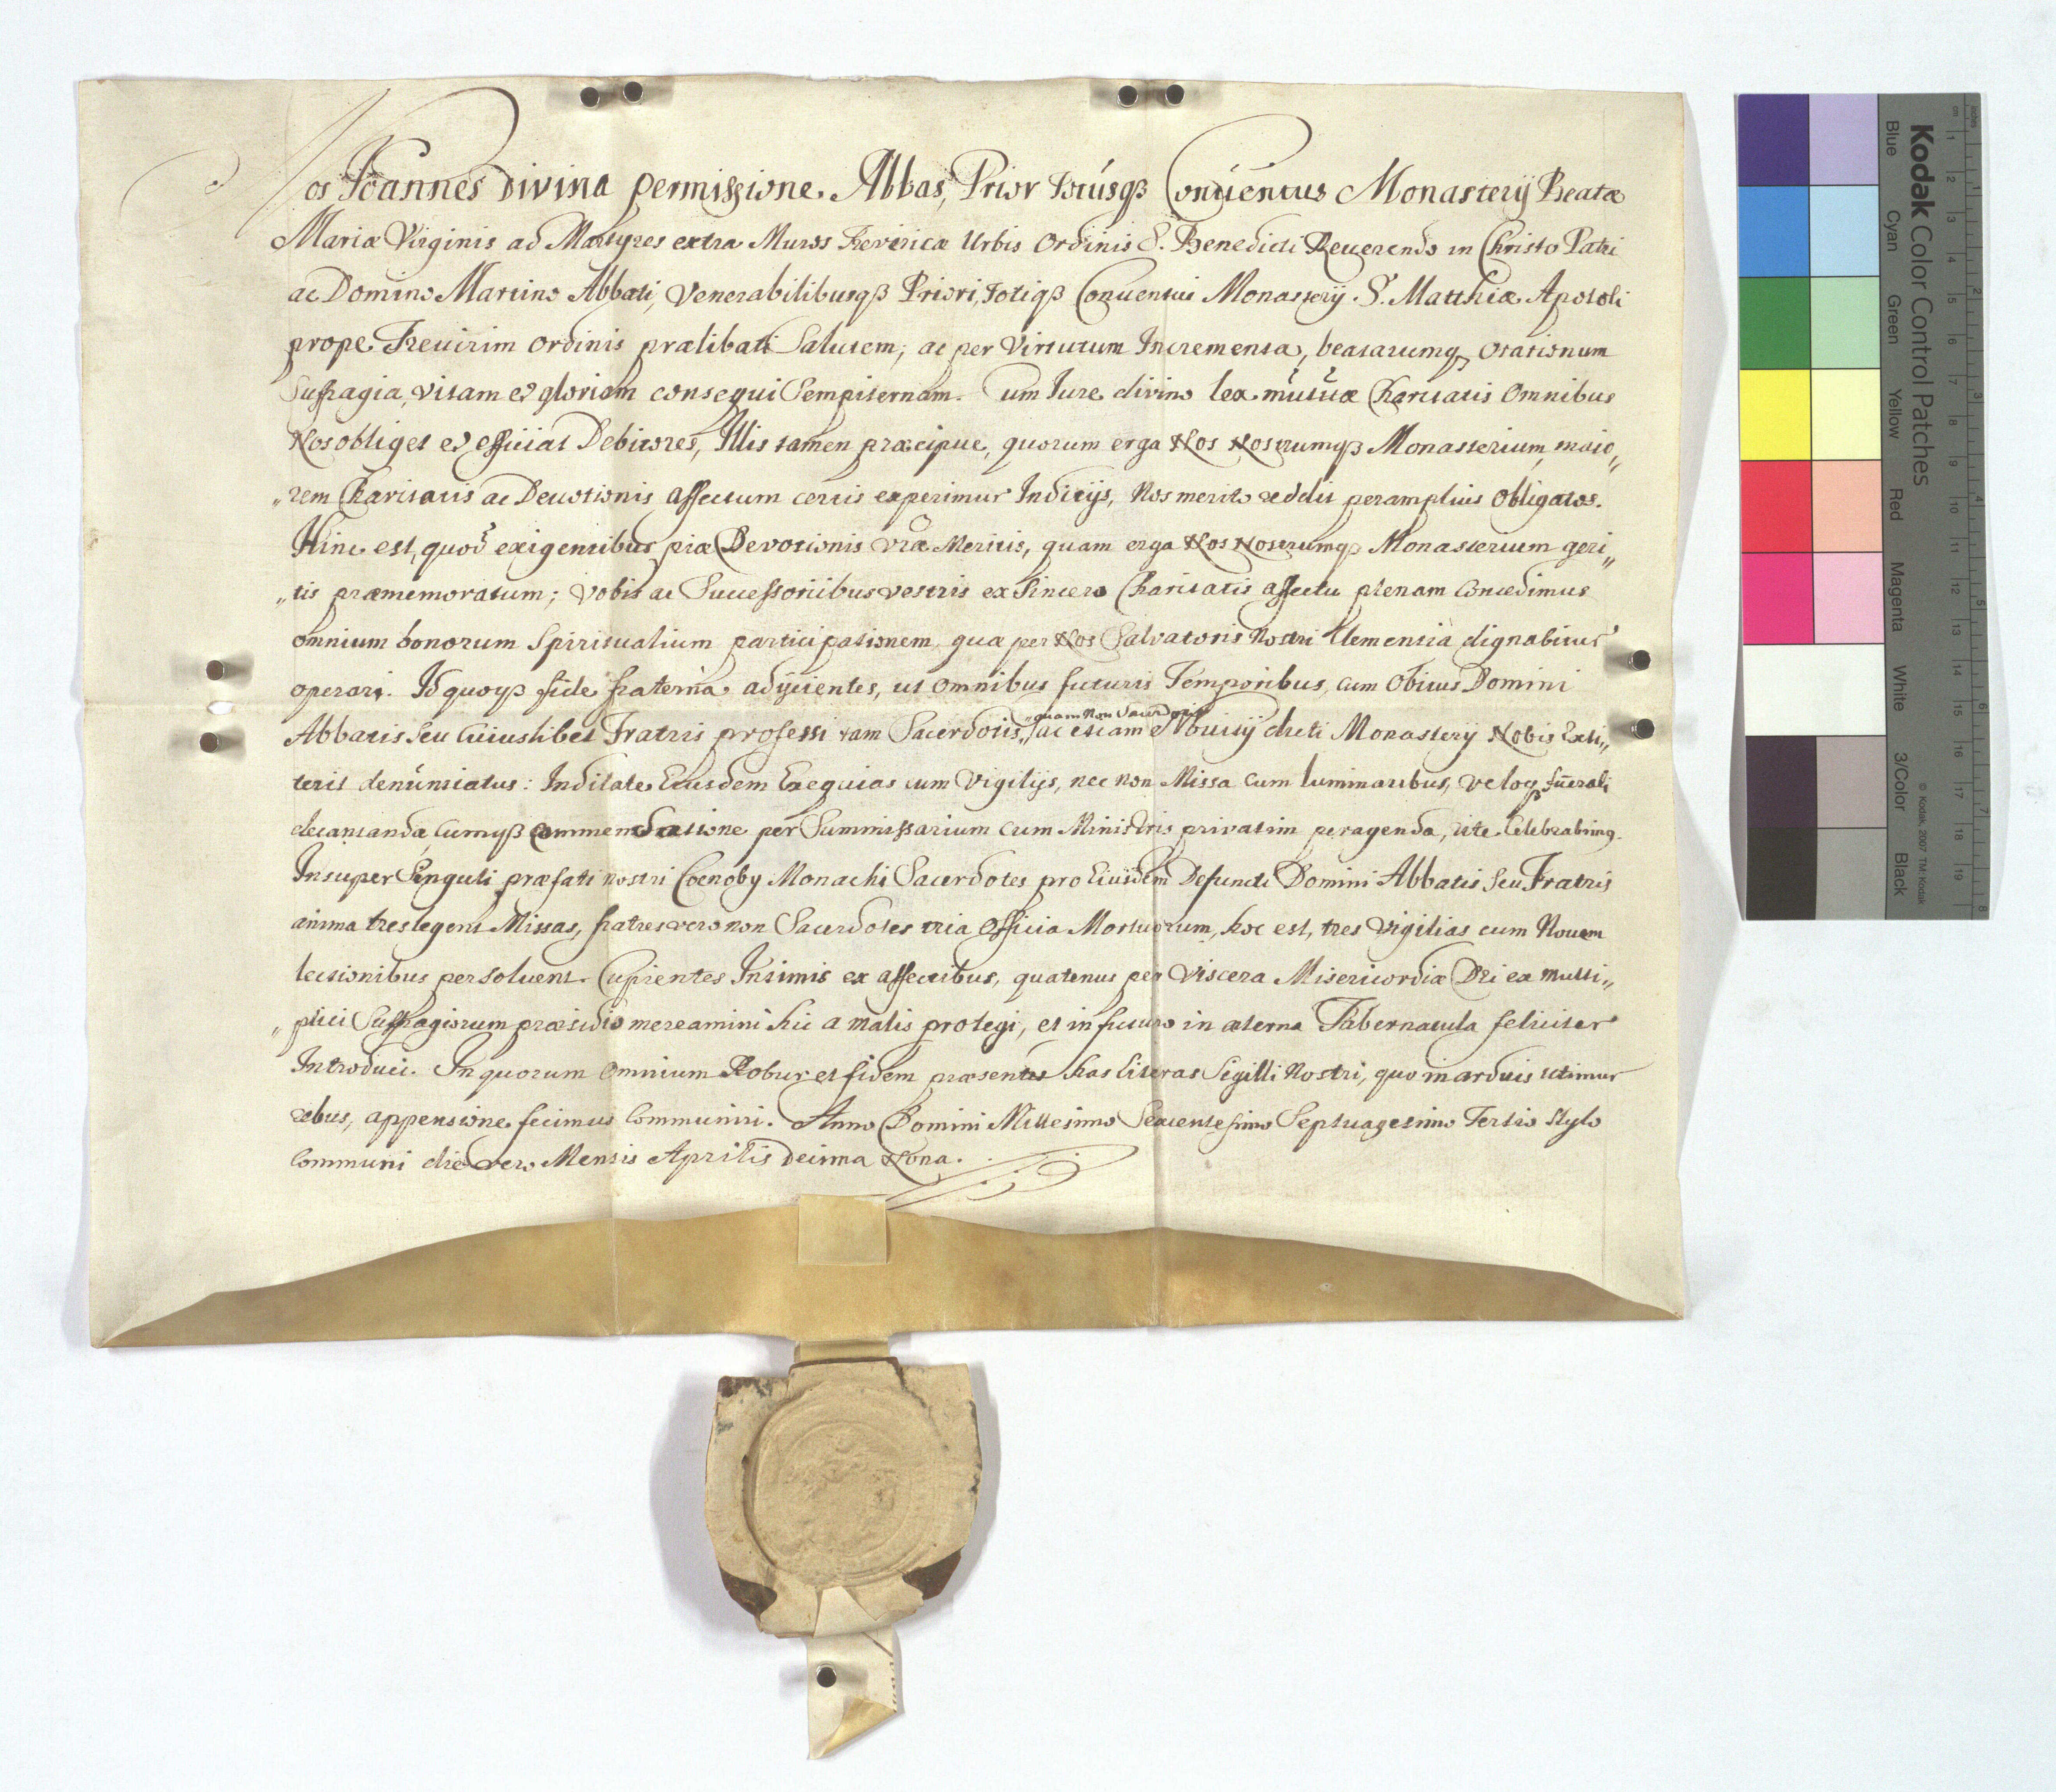 Nos Joannes Divina permissione Abbas, Prior totusq3 Conuentus Monasterij Beatæ
Mariæ Virginis ad Martyres extra Muros Treviricæ Urbis Ordinis S. Benedicti Reuerendo in Christo Patri
ac Domino Martino Abbati, Venerabilibusq3 Priori, totiq3 Conuentui Monasterij S. Matthiæ Apostoli
prope Treuirim Ordinis prælibati Salutem, ac per Virtutum Incrementa, beatarumq3 Orationum
Suffragia, vitam et gloriam consequi Sempiternam. Cum Jure divino lex mutuæ Charitatis Omnibus
Nos obliget et efficiat Debitores, Illis tamen præcipue, quorum erga Nos Nostrumq3 Monasterium, maio„
„rem Charitatis ac Deuotionis affectum certis experimur Indicijs, Nos merito reddit peramplius Obligatos.
Hinc est, quod exigentibus piæ Devotionis vræ Meritis, quam erga Nos Nostrumq3 Monasterium geri„
„tis præmemoratum; Vobis ac Successoribus vestris ex Sincero Charitatis affectu plenam Concedimus
omnium bonorum Spiritualium participationem, quæ per Nos Salvatoris Nostri Clementia dignabitur
operari. Id quoq3 fide fraterna adijcientes, ut Omnibus futuris Temporibus, cum Obitus Domini
Abbatis Seu Cuiuslibet Fratris professi tam Sacerdotis, „quam Non Sacerdotis „ac etiam Nouitij dicti Monasterij Nobis Exti„
terit denúntiatus: Indilate Eiusdem Exequias cum Vigilijs, nec non Missa cum luminaribus, veloq3 fūerali
decantanda, Cumq3 Commendatione per Summissarium cum Ministris privatim peragenda, rite Celebrabimus.
Insuper Singuli præfati nostri Coenobij Monachi Sacerdotes pro Eiusdem Defuncti Domini Abbatis Seu Fratris
anima tres legent Missas, fratres vero non Sacerdotes tria Officia Mortuorum, hoc est, tres Vigilias cum Nouem
lectionibus persoluent. Cupientes Intimis ex affectibus, quatenus per Viscera Misericordiæ Dei ex multi„
„plici Suffragiorum præsidio mereamini hic a malis protegi, et in futuro in æterna Tabernacula feliciter
Introduci. In quorum Omnium Robur et fidem præsentes has literas Sigilli Nostri, quo in arduis utimur
rebus, appensione fecimus Communiri. Anno Domini Millesimo Sexcentesimo Septuagesimo Tertio Stylo
Communi die vero Mensis Aprilis Decima Nona.
Kodak Color Control Patches
Blue Cyan Green Yellow Red Magenta White 3/Color Black
© Kodak, 2007 TM: Kodak
cm 1 2 3 4 5 6 7 8 9 10 11 12 13 14 15 16 17 18 19
inches 1 2 3 4 5 6 7 8